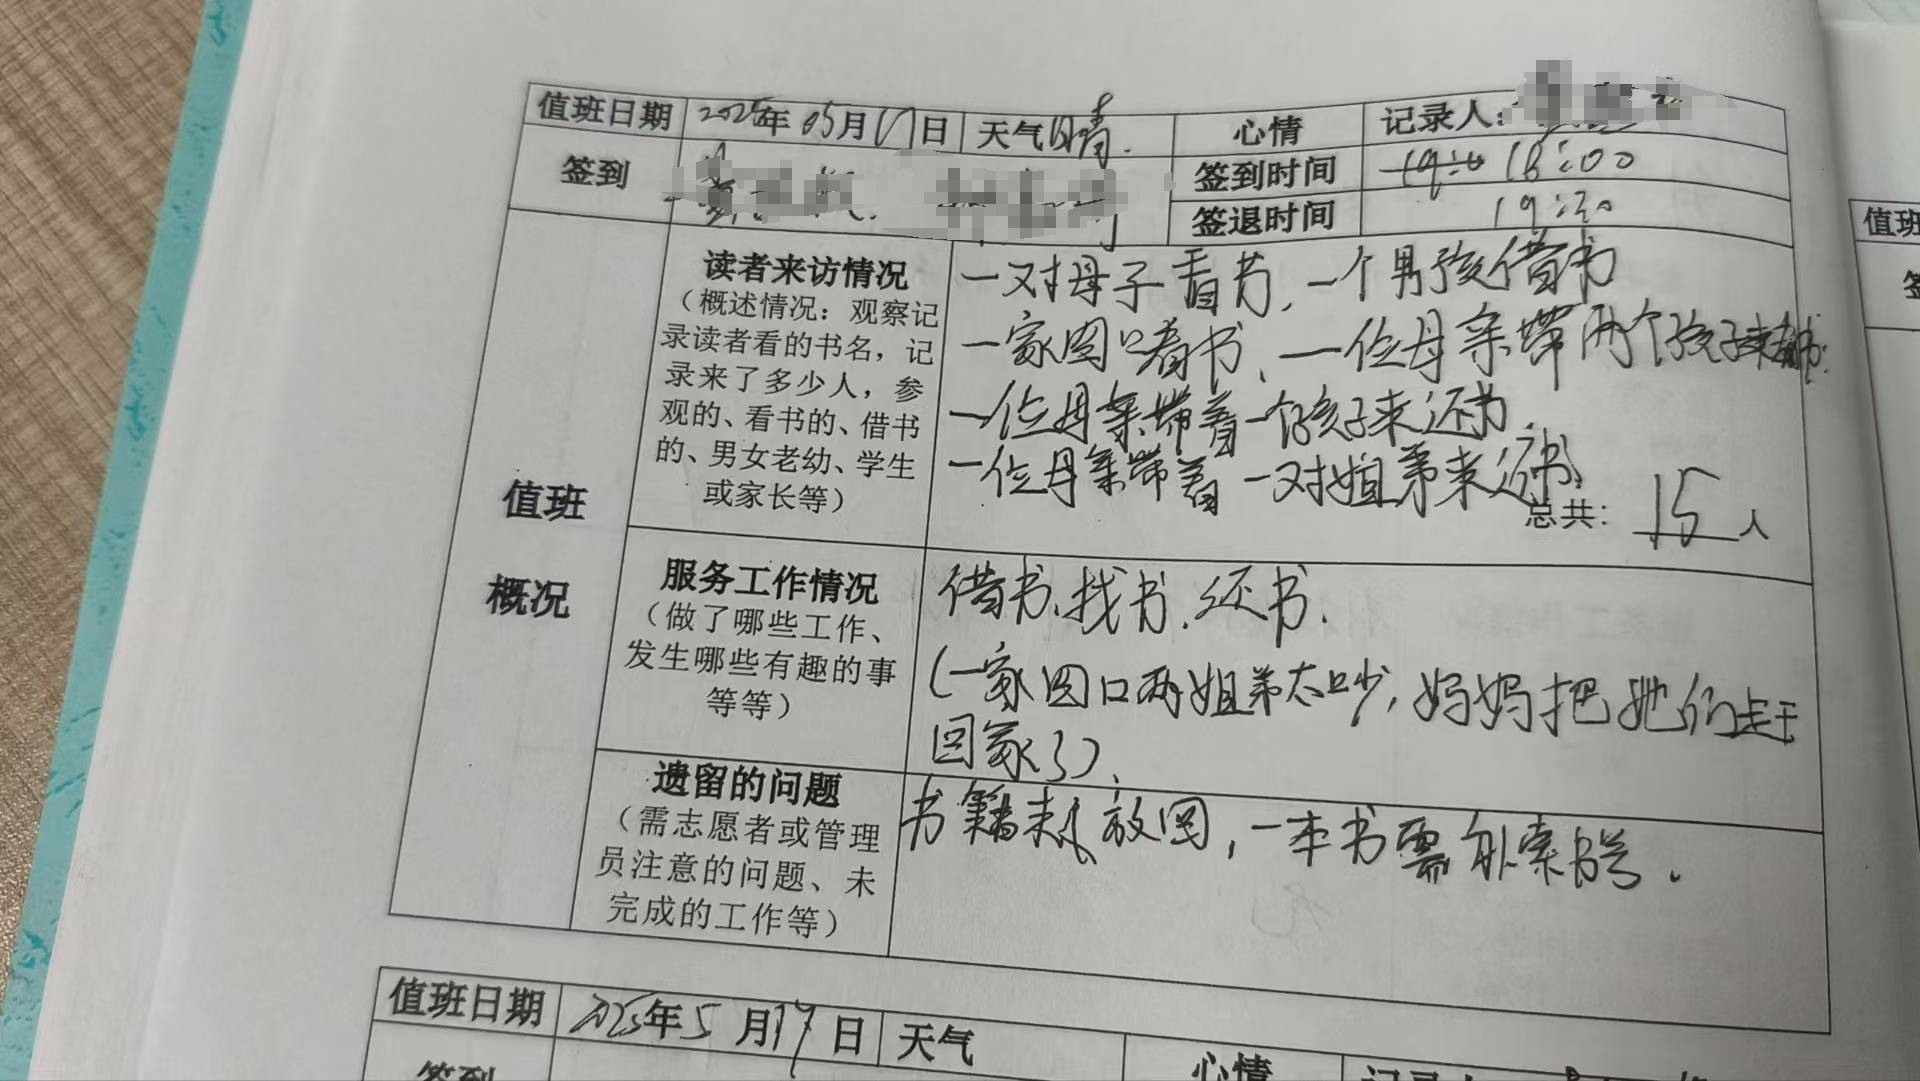 值班日期 2025年05月17日 天气 晴. 心情 记录人:
签到 签到时间 18:00
签退时间 19:30
值班
概况
读者来访情况
（概述情况：观察记
录读者看的书名，记
录来了多少人，参
观的、看书的、借书
的、男女老幼、学生
或家长等）
一对母子看书,一个男孩借书
一家四口看书、一位母亲带两个孩子来看书.
一位母亲带着一个孩子来还书
一位母亲带着一对姐弟来还书
总共：15人
服务工作情况
（做了哪些工作、
发生哪些有趣的事
等等）
借书、找书.还书.
(一家四口两姐弟太吵,妈妈把她们赶
回家了).
遗留的问题
（需志愿者或管理
员注意的问题、未
完成的工作等）
书籍未放回,一本书需补索书号.
值班日期 2025年5月17日 天气
心情 记录人
签到
值班